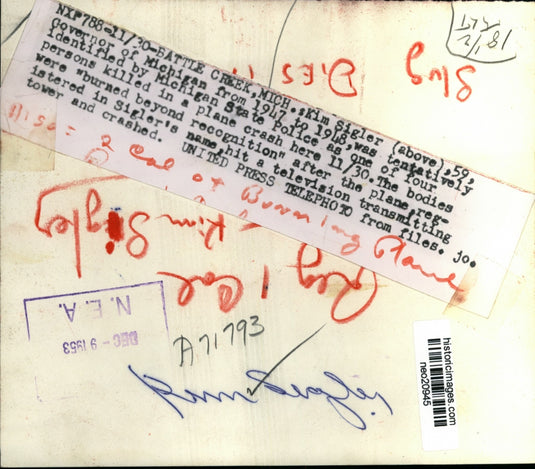 NXP788-11/30-BATTLE CREEK,MICH.:Kim Sigler (above),59,
Governor of Michigan from 1947 to 1948,was tentatively
identified by Michigan State Police as one of four
persons killed in a plane crash here 11/30. The bodies
were "burned beyond recognition" after the plane,reg-
istered in Sigler's name,hit a television transmitting
tower and crashed.
UNITED PRESS TELEPHOTO from files. jo.
Slug
DIES IN
2 Col of Burning Plane
Kim Sigler
Reg 1 Col
N.E.A.
DEC - 9 1953
A71793
Kim Sigler
historicimages.com
neo20945